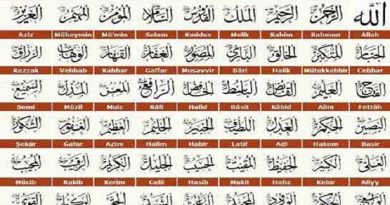 الله الرحمن الرحيم الملك القدوس السلام المؤمن المهيمن العزيز
Aziz Müheymin Mü'min Selam Kuddus Melik Rahim Rahman Allah
الجبار المتكبر الخالق البارئ المصور الغفار القهار الوهاب الرزاق
Rezzak Vehhab Kahhar Gaffar Musavvir Bâri Halik Mütekkebbir Cebbar
الفتاح العليم القابض الباسط الخافض الرافع المعز المذل السميع
Semi Müzil Muiz Râfi Hafid Bâsit Kâbid Alim Fettâh
البصير الحكم العدل اللطيف الخبير الحليم العظيم الغفور الشكور
Şekür Gafur Azim Halim Habir Latif Adl Hakem Basir
العلي الكبير الحفيظ المقيت الحسيب الجليل الكريم الرقيب المجيب
Mücib Rakib Kerim Celil Hasib Mukit Hafız Kebir Aliyy